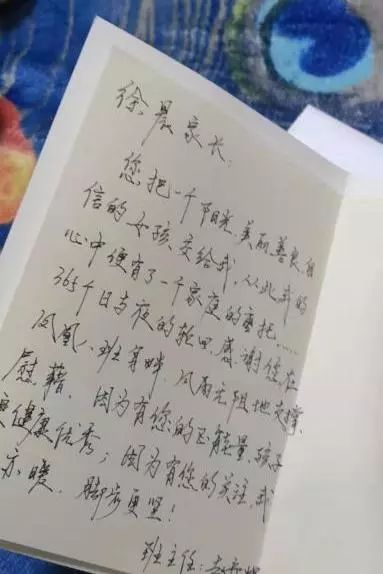 徐晨家长：
您把一个阳光、美丽、善良、自
信的女孩交给我，从此我的
心中便有了一个家庭的重托……
365个日与夜的轮回，感谢您在
凤凰、班等群，风雨无阻地支撑、
慰藉，因为有您的正能量，孩子
更健康优秀；因为有您的关注，我
亦暖，脚步更坚！
班主任：